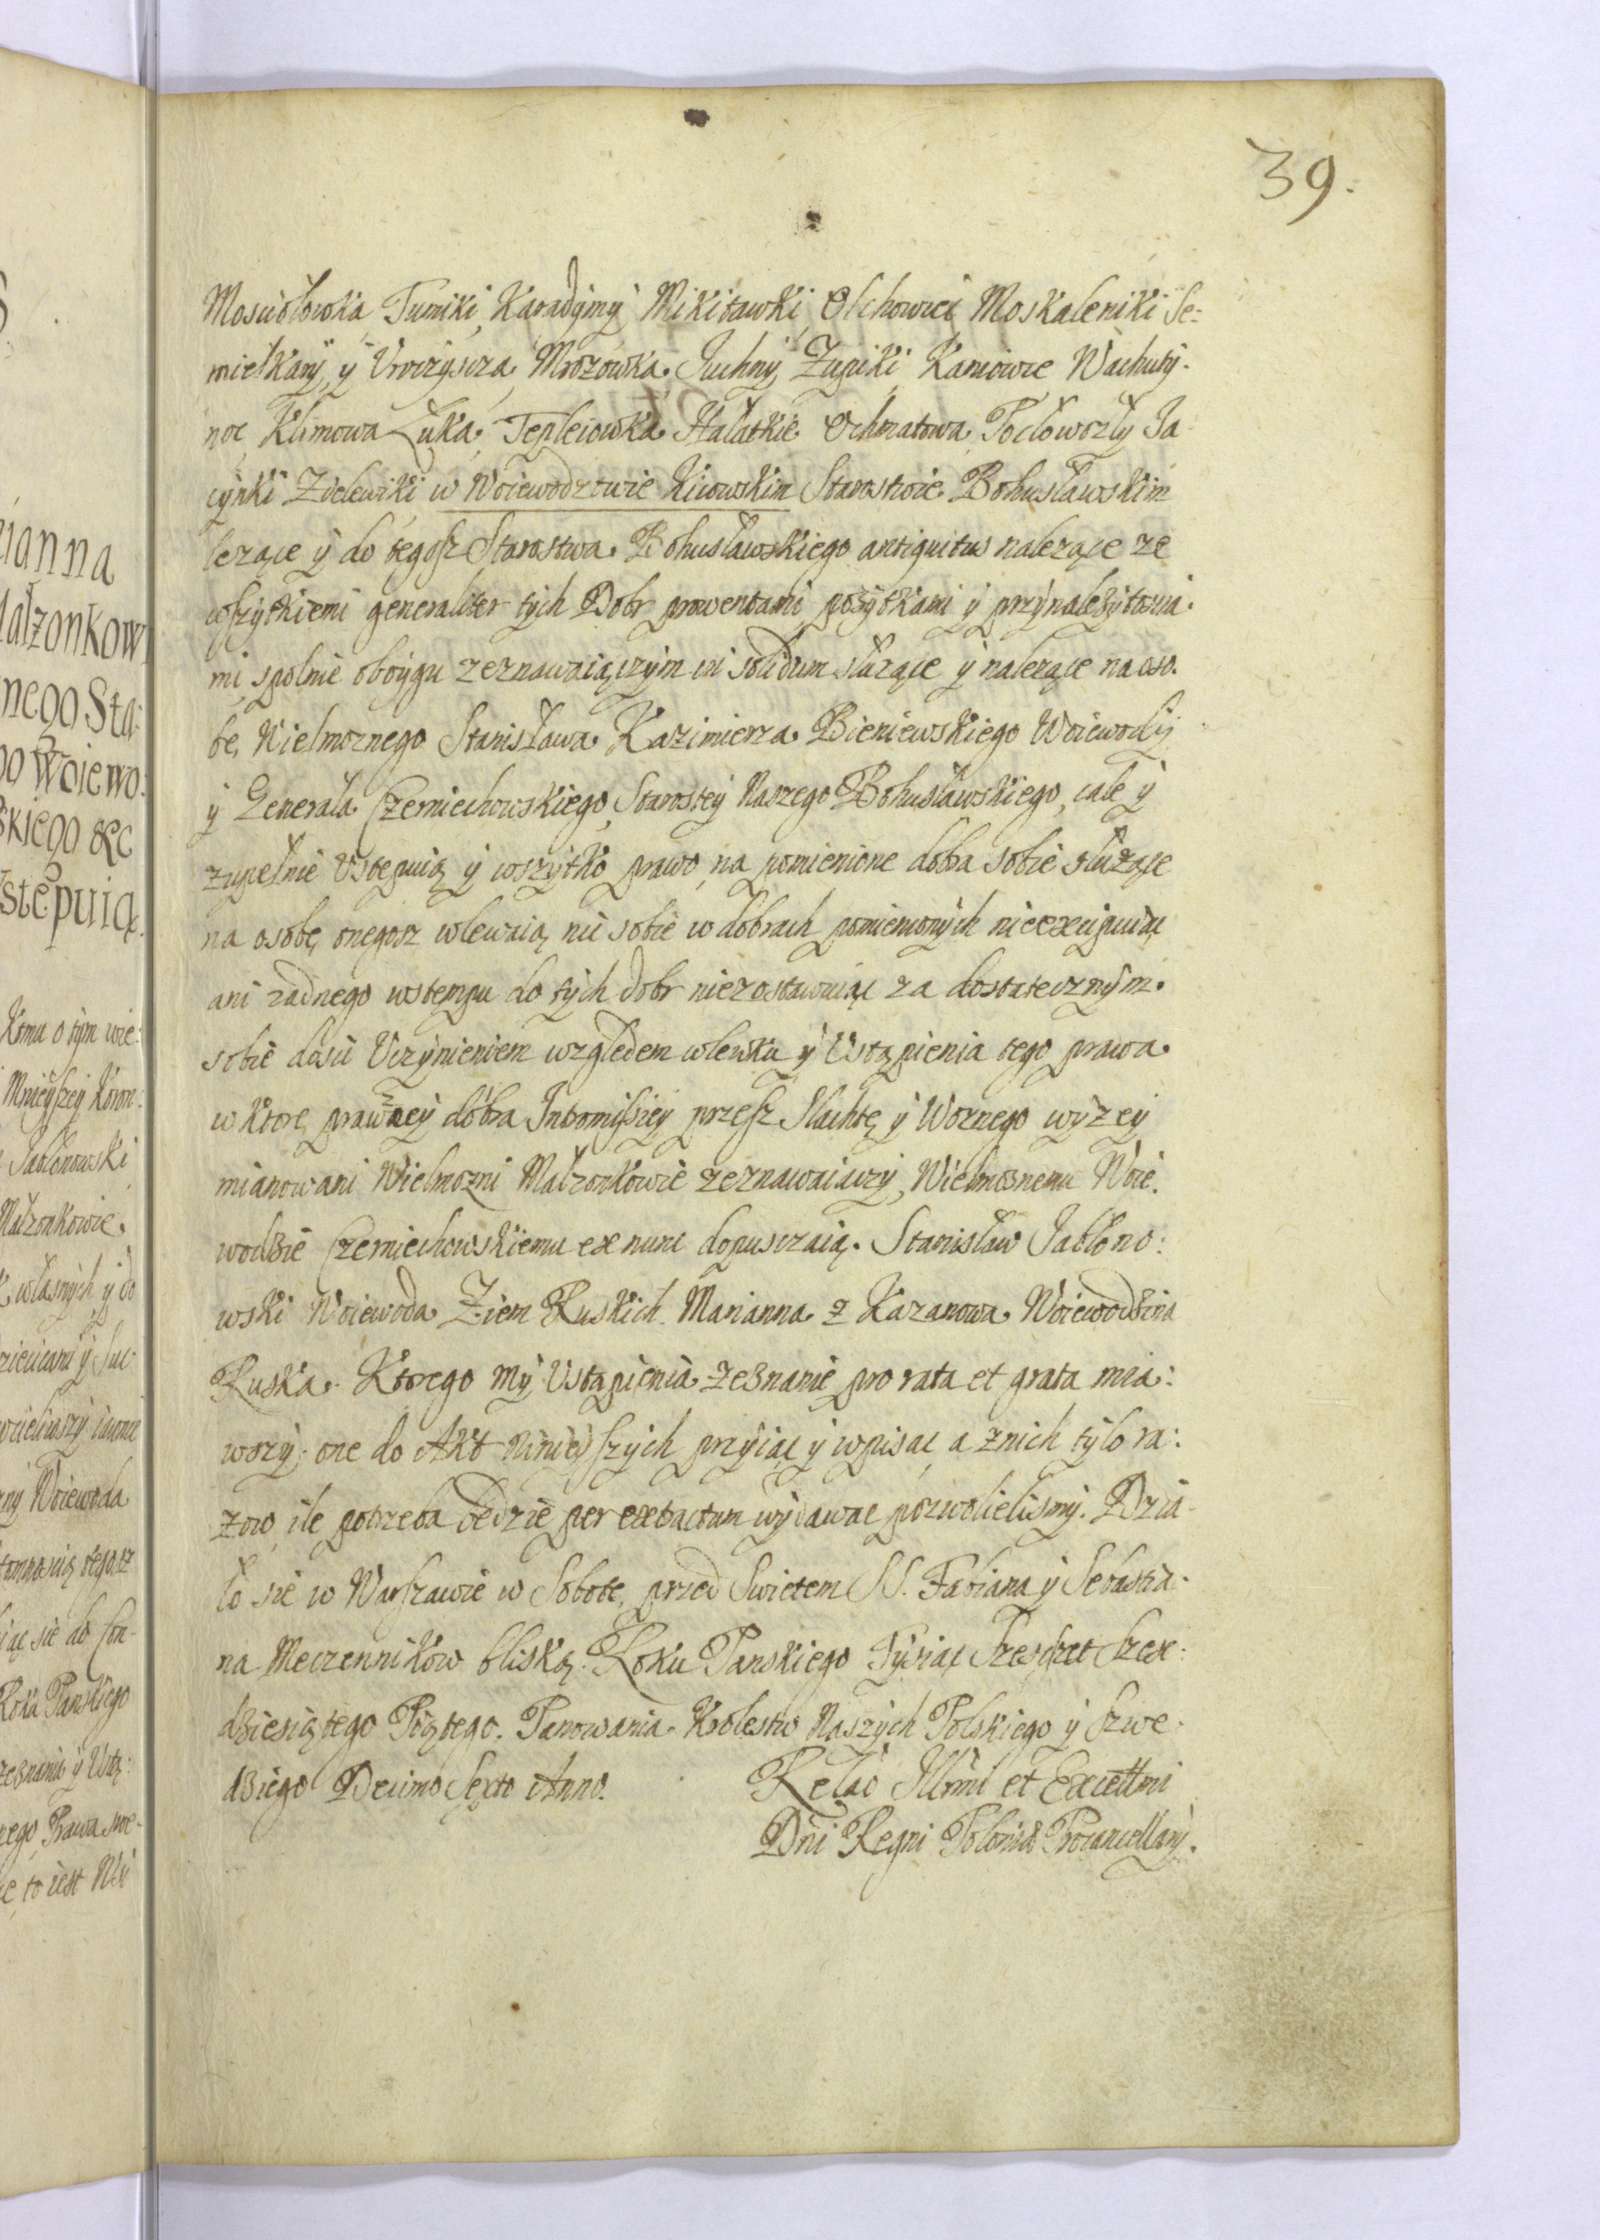 39.
Mosciołowka, Tuniki, Karadymy, Mikitawki, Olchowiec Moskaleniki Se:
mielkary, y Vroczyscza, Mrozowka, Juchny, Zupiki, Kaniowce Wachuty-
noc Klimowa Łuka, Tepleiowka, Hałatkie Ochmatowa, Pocłowozły Ja
cynki Zielewiki, w Woiewodztwie Kiiowskim Starostwie Bohusławskim
lezące y do tegosz Starostwa Bohusławskiego antiquitus nalezące ze
wszytkiemi generaliter tych Dobr prowentami pozytkami y przynalezytosia-
mi spolnie oboygu zeznawaiączym in solidum słuzące y nalezące na oso-
be, Wielmoznego Stanisława Kazimierza Bieniewskiego Woiewody
y Generała Czerniechowskiego, Starostey Naszego Bohusławskiego, całe y
zupełnie Vstępuią y wszytko prawo, na pomienione dobra sobie słuzące
na osobę onegosz wlewaią nic sobie w dobrach pomienionych nieexcypuiąc
ani zadnego wstempu do tych dobr niezostawuiąc za dostatecznym
sobie dosic Vczynieniem względem wlewku y Vstąpienia tego prawa
w ktore prawney dobra Intromissiey przesz Slachtę y Woznego wyzey
mianowani Wielmozni Małzonkowie zeznawaiączy, Wielmoznemu Woie-
wodzie Czerniechowskiemu ex nunc dopusczaią. Stanisław Jabłono:
wski Woiewoda Ziem Ruskich. Marianna z Kazanowa Woiewodzina
Ruska. Ktorego my Vstąpienia zeznanie pro rata et grata mia:
wszy, one do Akt Ninieyszych przyiąc y wpisac, a znich tylo ra:
zow, ile potrzeba będzie per extractum wydawac pozwolielismy. Dzia-
ło się w Warszawie w Sobotę, przed Swiętem SS. Fabiana y Sebastia-
na Męczennikow bliską. Roku Panskiego Tysiąc Szescset Szesc-
dziesiątego Piątego. Panowania Krolestw Naszych Polskiego y Szwe-
dziego Decimo Sexto Anno.
Relac Illrmi et Excellmi
Dni Regni Poloniæ Procancellary.
ianna
Małzonkow
nego Sta:
o Woiewo:
skiego &c
Vstępuią.
Ktmu o tym wie:
Mnieyszey Koron:
Jabłonowski
Małzonkowie.
własnych y do
ny Woiewoda
tegosz
iąc sie do Con-
Roku Panskiego
zeznania y Vstą:
Prawa swe-
to iest